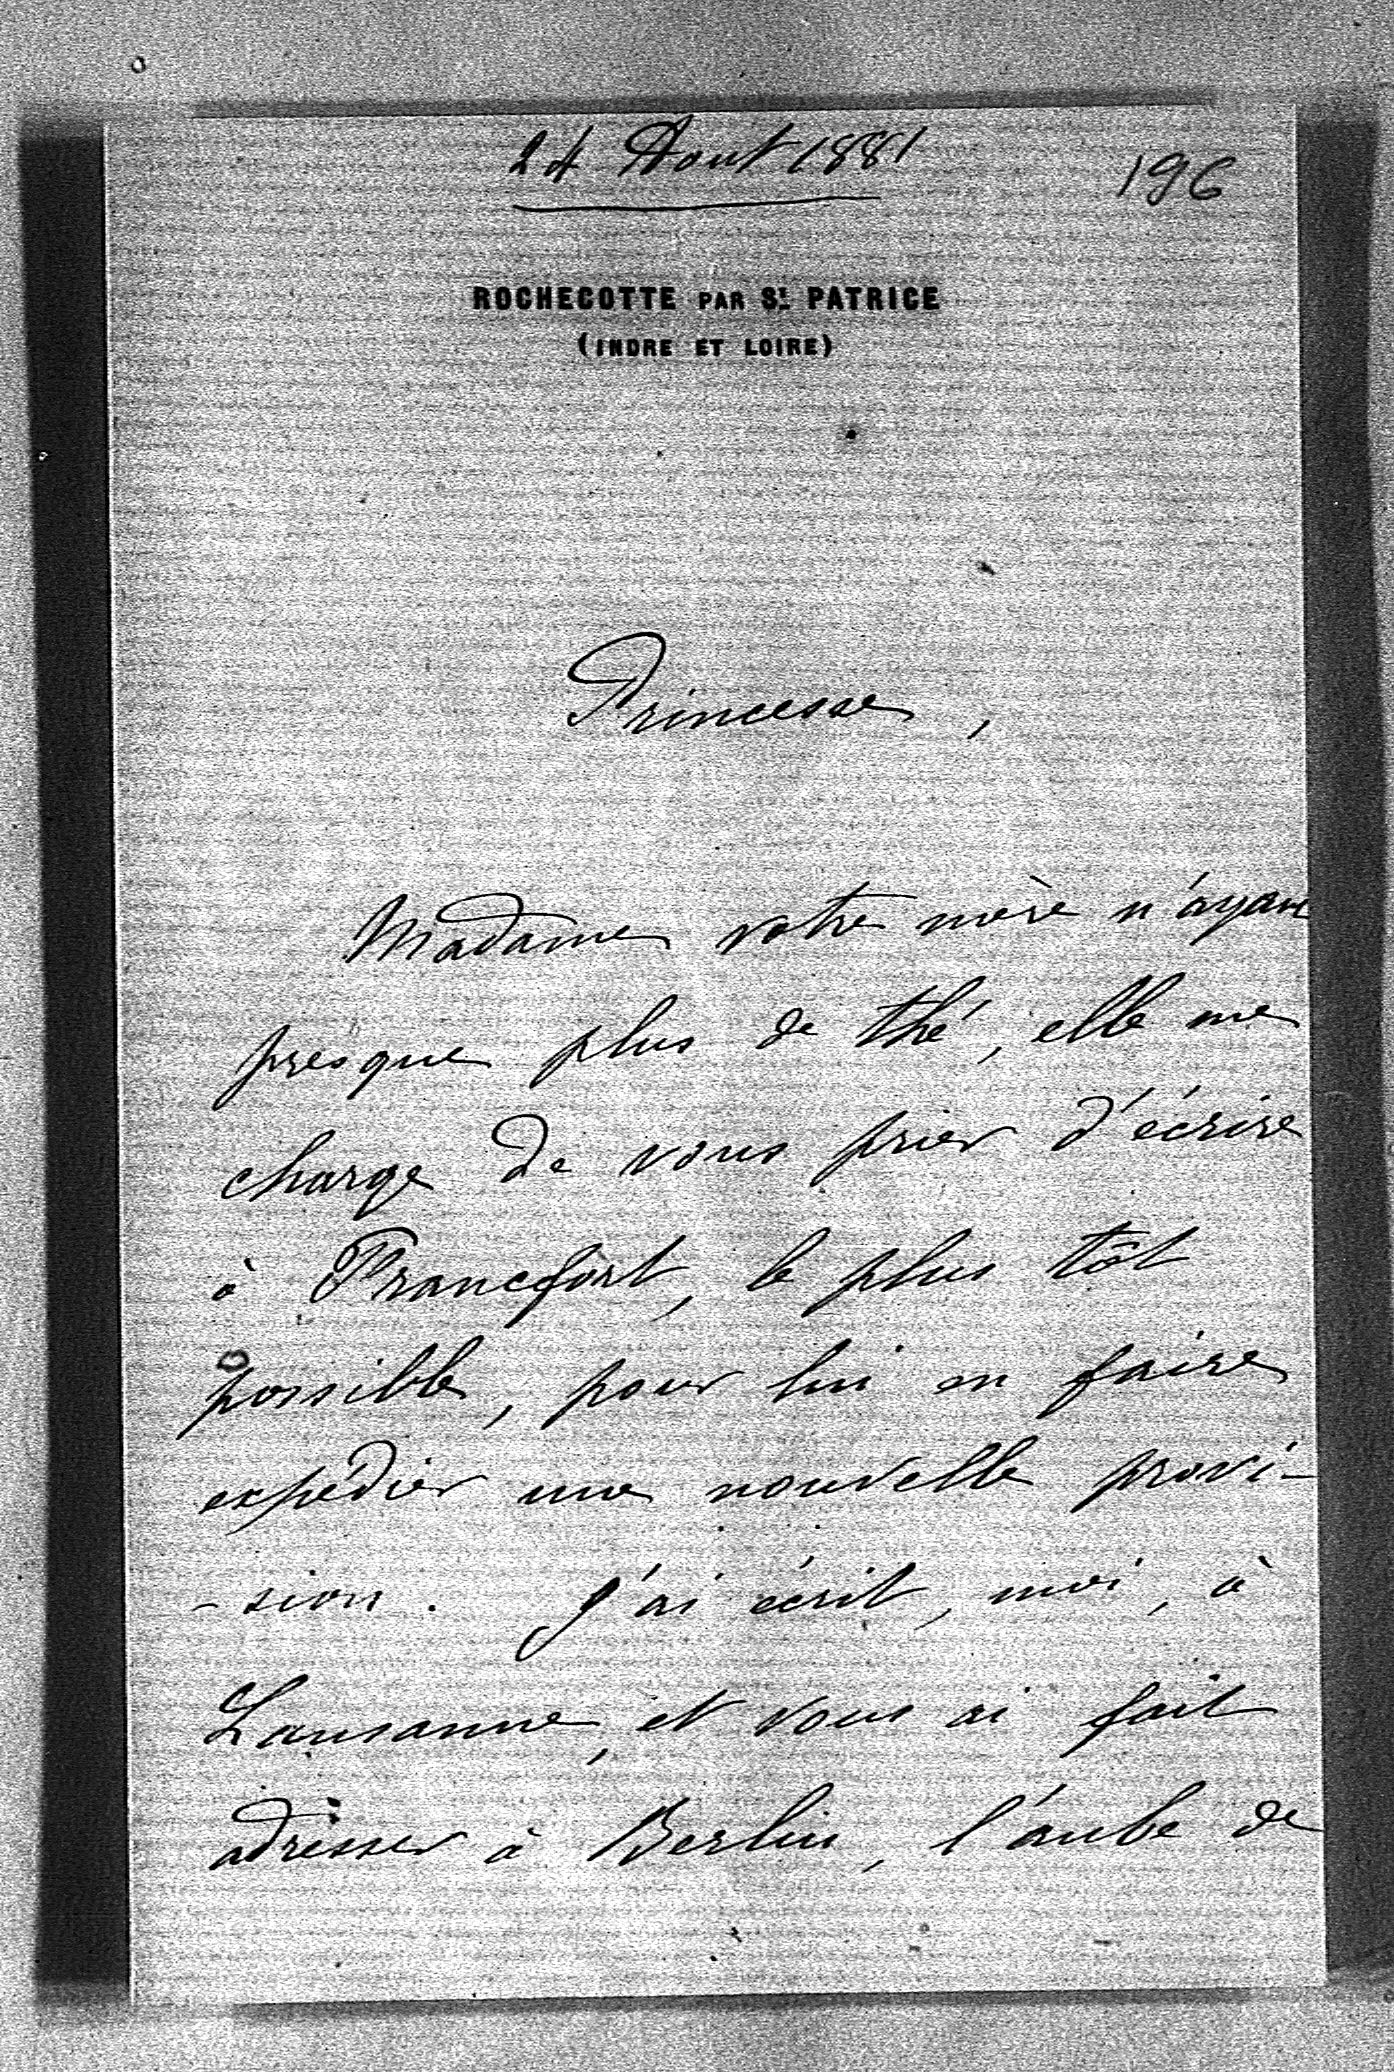 24 Aout 1881
196
ROCHECOTTE PAR St. PATRICE
(INDRE ET LOIRE)
Princesse,
Madame votre mère n'ayant
presque plus de thé, elle me
charge de vous prier d'écrire
à Francfort, le plus tôt
possible, pour lui en faire
expédier une nouvelle provi-
-sion. J'ai écrit, moi, à
Lausanne, et vous ai fait
adresser à Berlin, l'aube de